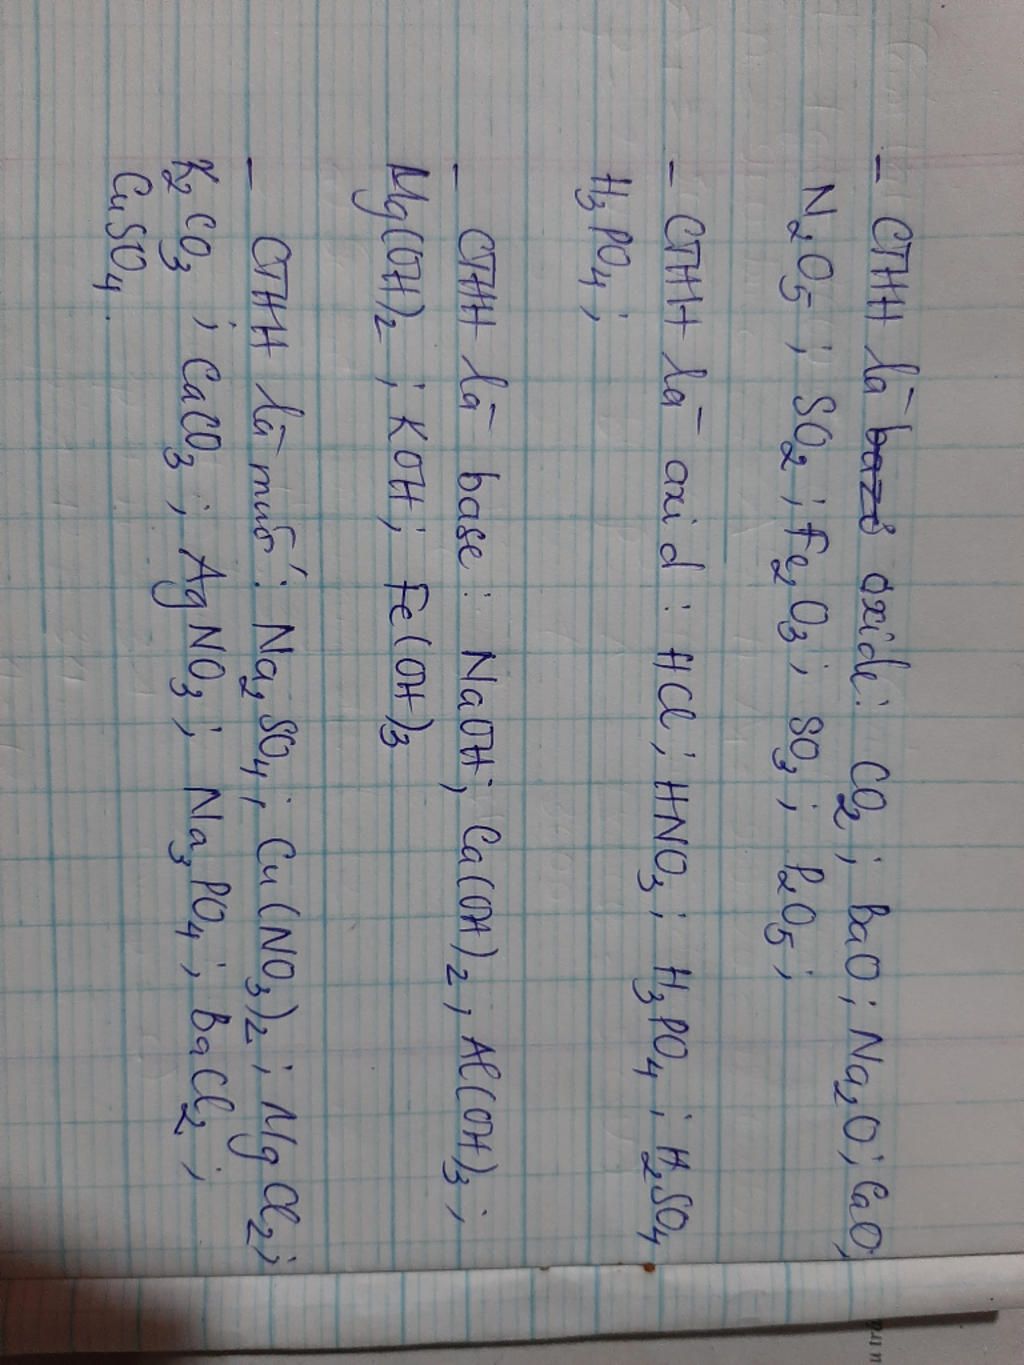 - CTHH là oxide: CO2; BaO; Na2O; CaO;
N2O5; SO2; Fe2O3; SO3; P2O5;
- CTHH là axid: HCl; HNO3; H3PO4; H2SO4
H3PO4;
- CTHH là base: NaOH; Ca(OH)2; Al(OH)3;
Mg(OH)2; KOH; Fe(OH)3
- CTHH là muối: Na2SO4; Cu(NO3)2; MgCl2;
K2CO3; CaCO3; AgNO3; Na3PO4; BaCl2;
CuSO4.